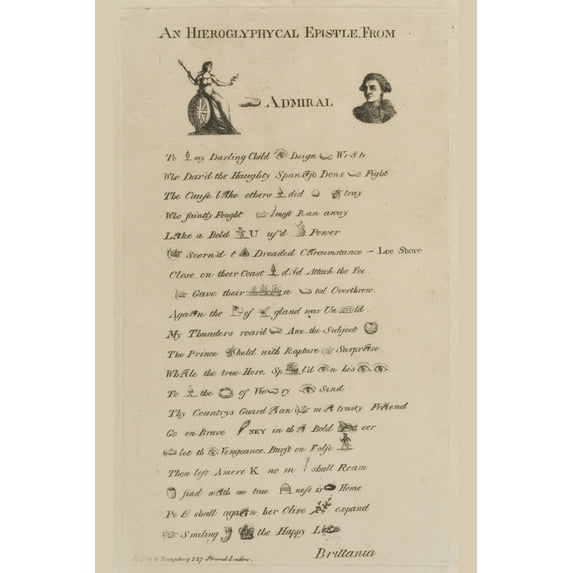 AN HIEROGLYPHYCAL EPISTLE, FROM
ADMIRAL
To my Darling Child Deign Wr te
Who Dar'd the Haughty Span Dons Fight
The Cause l ke others did tray
Who faintly Fought Ran away
L ke a Bold U us'd Power
Scorn'd t Dreaded C rcumstance - Lee Shore
Close on their Coast d d Attack the Foe
Gave their a tal Overthrow.
Aga n the of gland was Un ld.
My Thunders roar'd Ane. the Subject
The Prince held with Rapture Surpr se
Wh le the true Hero, Sp l'd n his
To the of V ory Send
Thy Countrys Guard an m trusty Fr end
Go on Brave NEY in th Bold eer
let th Vengeance, Burst on False
Then left Ameri K no m shall Roam
find w th me true ness is Home
Pe E shall aga n her Olive expand
Smiling the Happy L
Brittania
by W. Humphrey 227 Strand London.